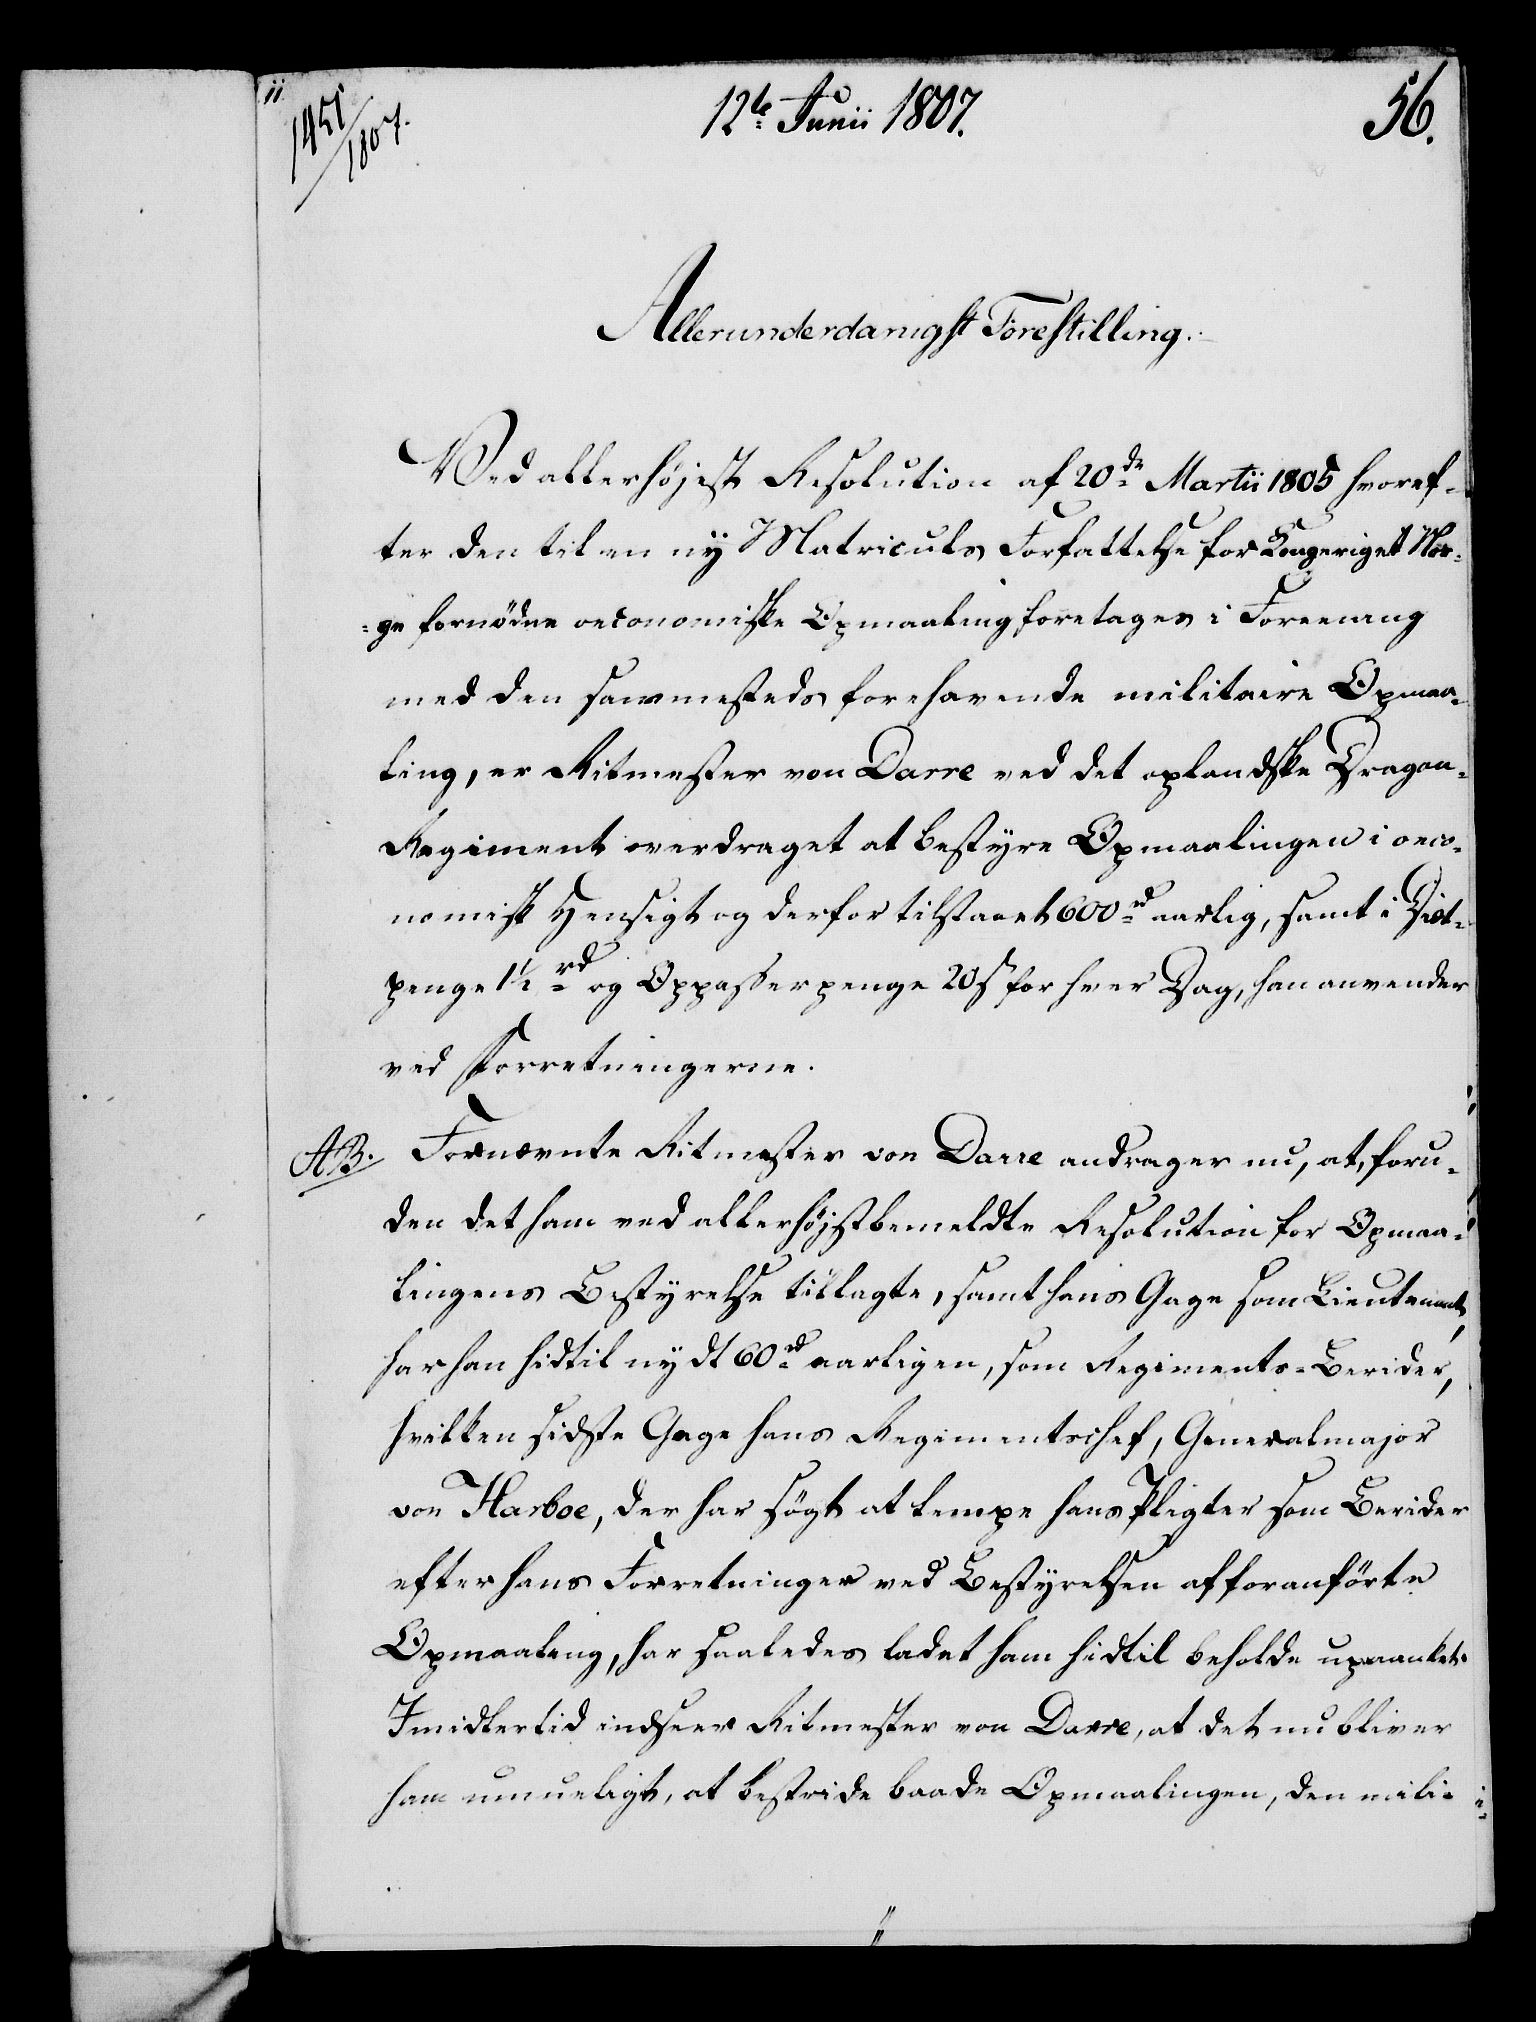 1451/1807.
12te Junii 1807.
56.
Allerunderdanigst Forestilling.
Ved allerhöjest Resolution af 20de Martii 1805 hvoref-
ter den til en ny Matriculs Forfattelse for Kongeriget Nor-
-ge fornödne oeconomiske Opmaaling foretages i Foreening
med den sammesteds forehavende militaire Opmaa-
ling, er Ritmester von Darre ved det oplandske Dragon-
Regiment overdraget at bestyre Opmaalingen i oeco-
nomisk Hensigt og derfor tilstaaet 600 rd aarlig, samt i Diæt-
penge 1½ rd og Oppasserpenge 20 s for hver Dag, han anvender
ved Forretningerne.
AB. Fornævnte Ritmester von Darre andrager nu, at, foru-
den det ham ved allerhöjstbemeldte Resolution for Opmaa-
lingens Bestyrelse tillagte, samt hans Gage som Lieutenant,
har han hidtil nydt 60 rd aarligen, som Regiments-Berider,
hvilken sidste Gage hans Regimentschef, Generalmajor
von Harboe, der har sögt at lempe hans Pligter som Berider
efter hans Forretninger ved Bestyrelsen af foranförte
Opmaaling, har saaledes ladet ham hidtil beholde upaanket.
Imidlertid indseer Ritmester von Darre, at det nu bliver
ham umueligt, at bestride baade Opmaalingen, den mili-